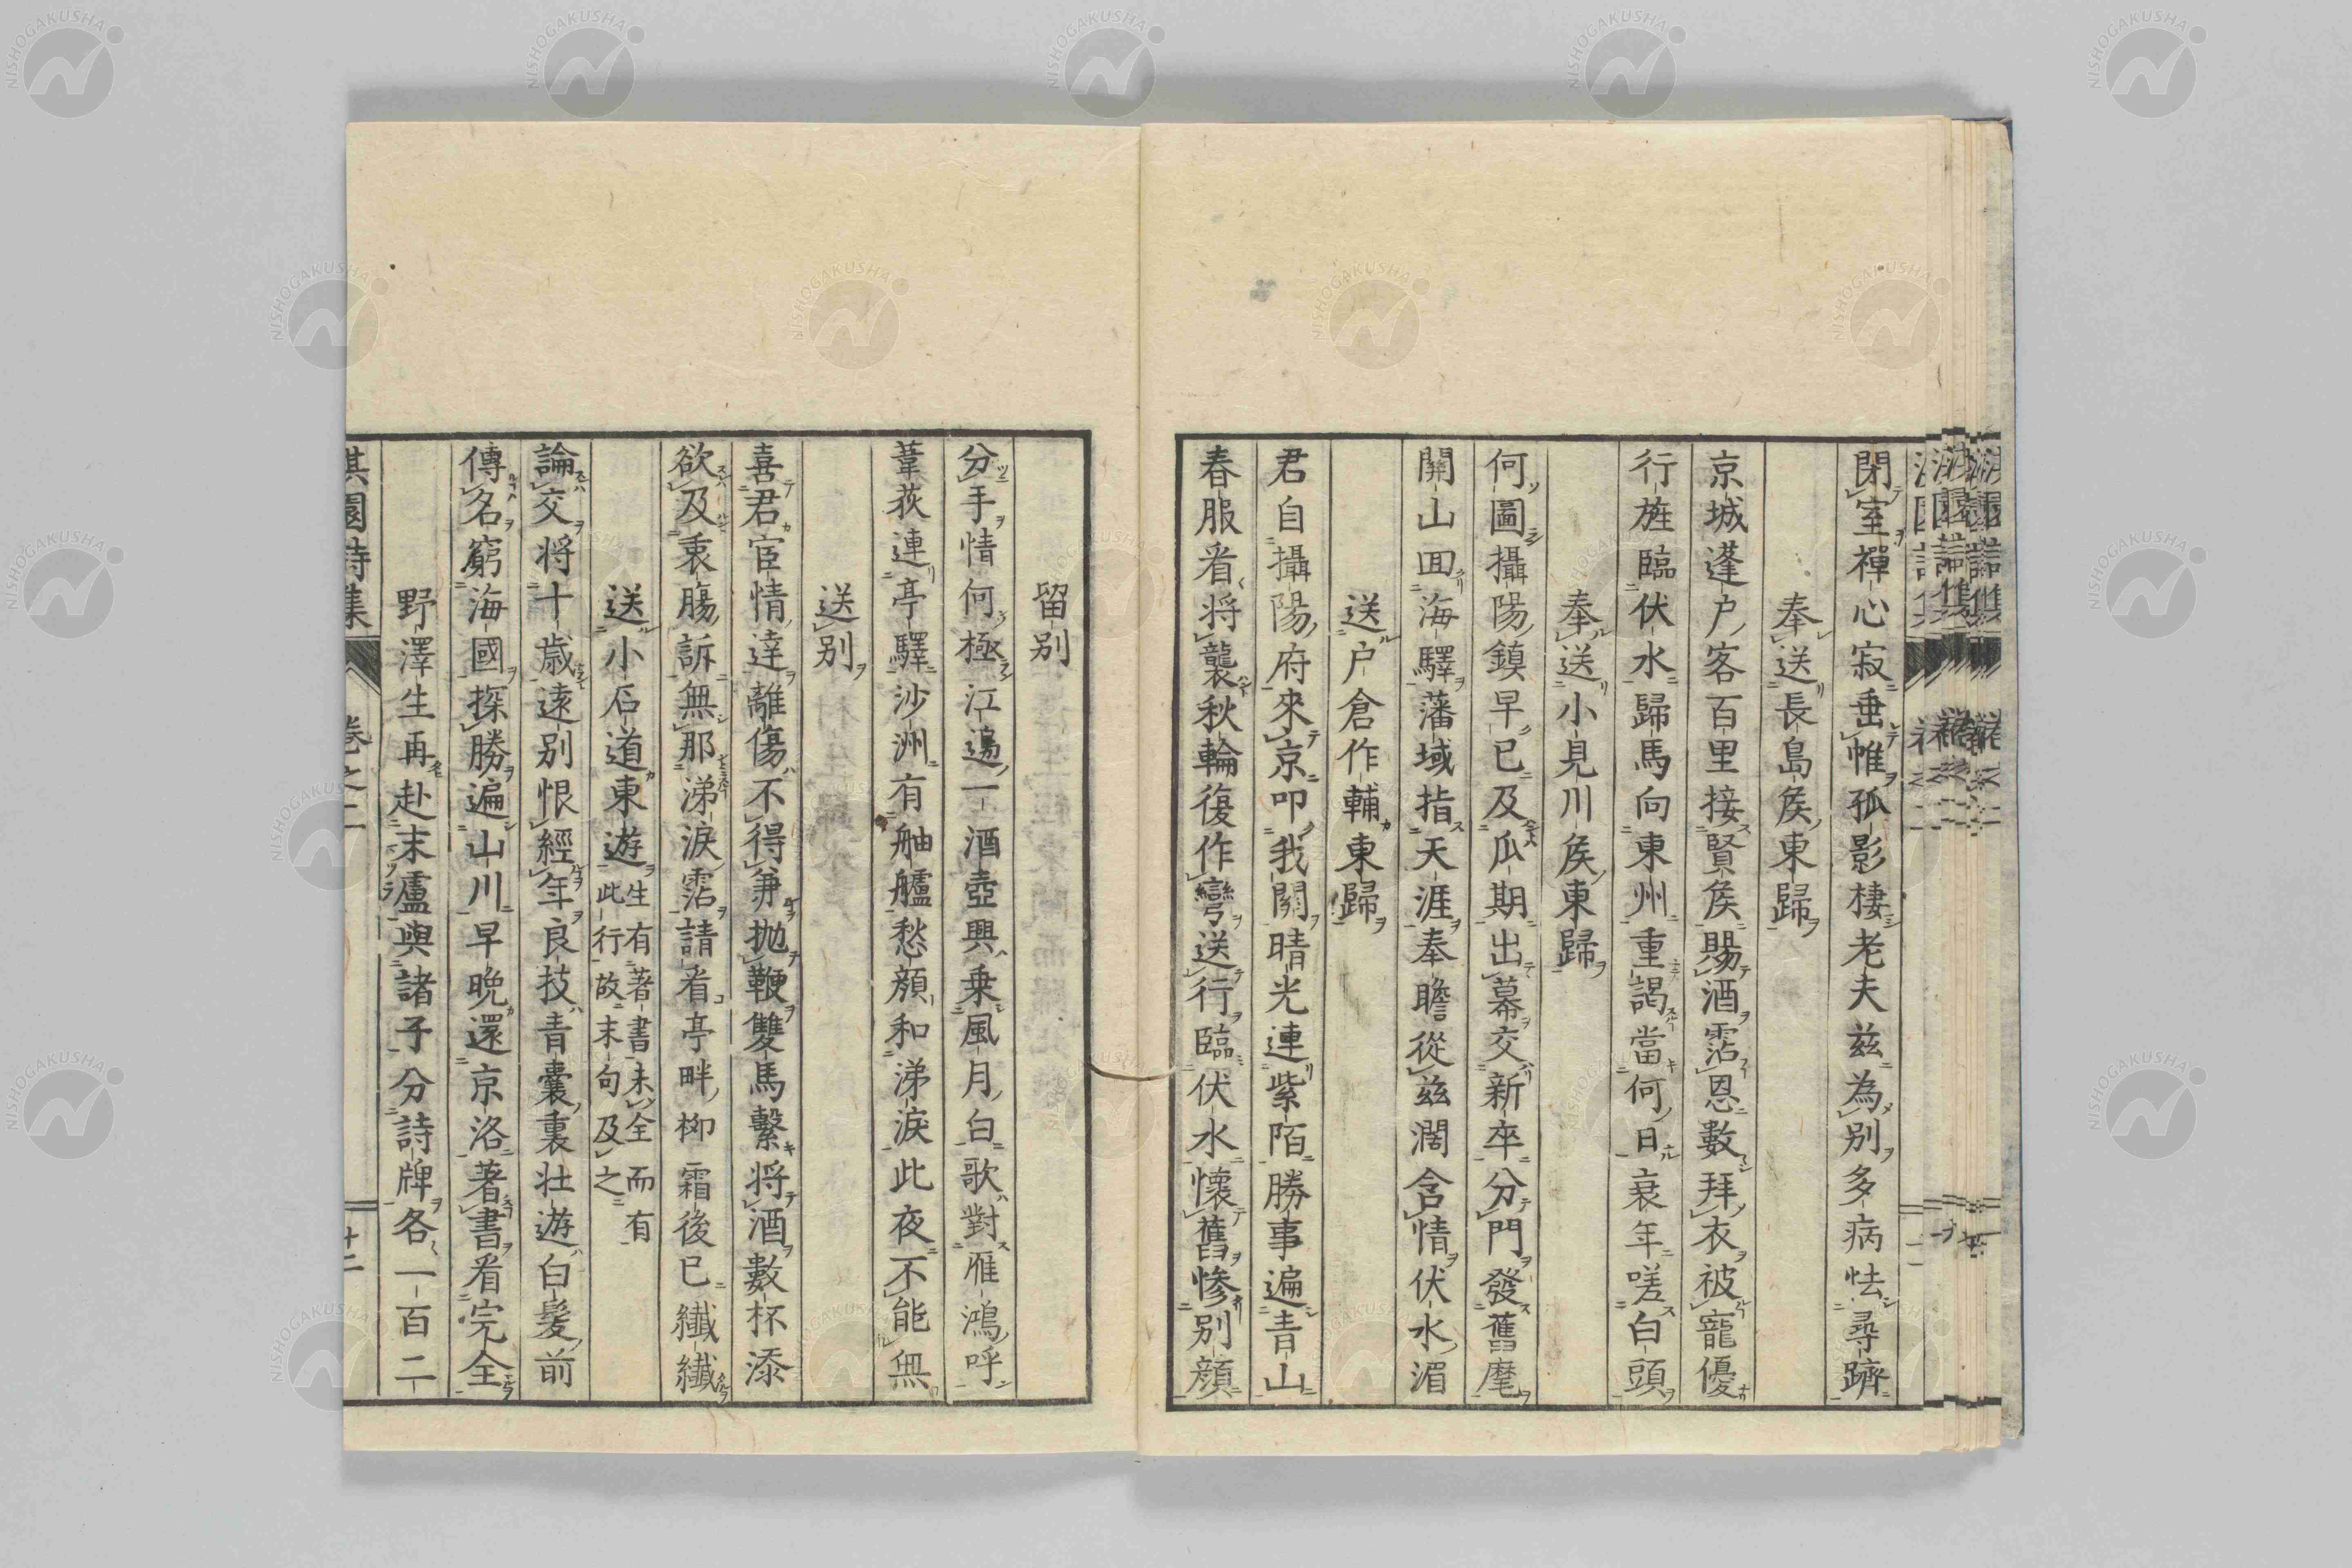 閉室禪心寂垂帷孤影棲老夫茲為別多病怯尋躋
奉送長島矦東歸
京城蓬户客百里接賢矦賜酒霑恩數拜衣被寵優
行旌臨伏水歸馬向東州重謁當何日衰年嗟白頭
奉送小見川矦東歸
何圖攝陽鎮早已及瓜期出幕交新卒分門發舊麾
關山囬海驛藩域指天涯奉瞻從茲濶含情伏水湄
送户倉作輔東歸
君自攝陽府來京叩我關晴光連紫陌勝事遍青山
春服看將襲秋輪復作彎送行臨伏水懷舊慘別顔
留別
分手情何極江邊一酒壺興乗風月白歌對雁鴻呼
葦荻連亭驛沙洲有舳艫愁顔和涕淚此夜不能無
送別
喜君宦情達離傷不得兼抛鞭雙馬繫將酒數杯添
欲及衷腸訴無那涕淚霑請看亭畔柳霜後已纖纖
送小石道東遊生有著書未全而有此行故末句及之
論交将十歲遠別恨經年良技青囊裏壮遊白髮前
傳名窮海國探勝遍山川早晩還京洛著書看完全
野澤生再赴末盧與諸子分詩牌各一百二
淇園詩集 卷之二 十二